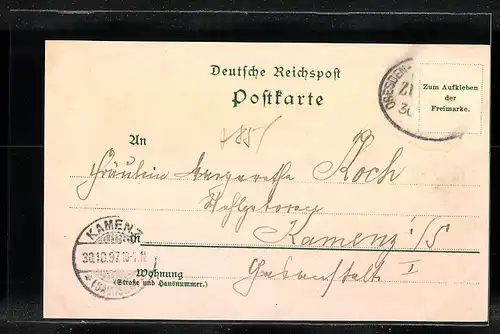 Deutsche Reichspost
Postkarte
DRESDEN-
Zum Aufkleben
der
Freimarke.
An
Fräulein Margarethe Koch
Wohlgeboren
KAMENZ
30.10.97
in Kamenz i/S
Wohnung
(Straße und Hausnummer.)
Gasanstalt I